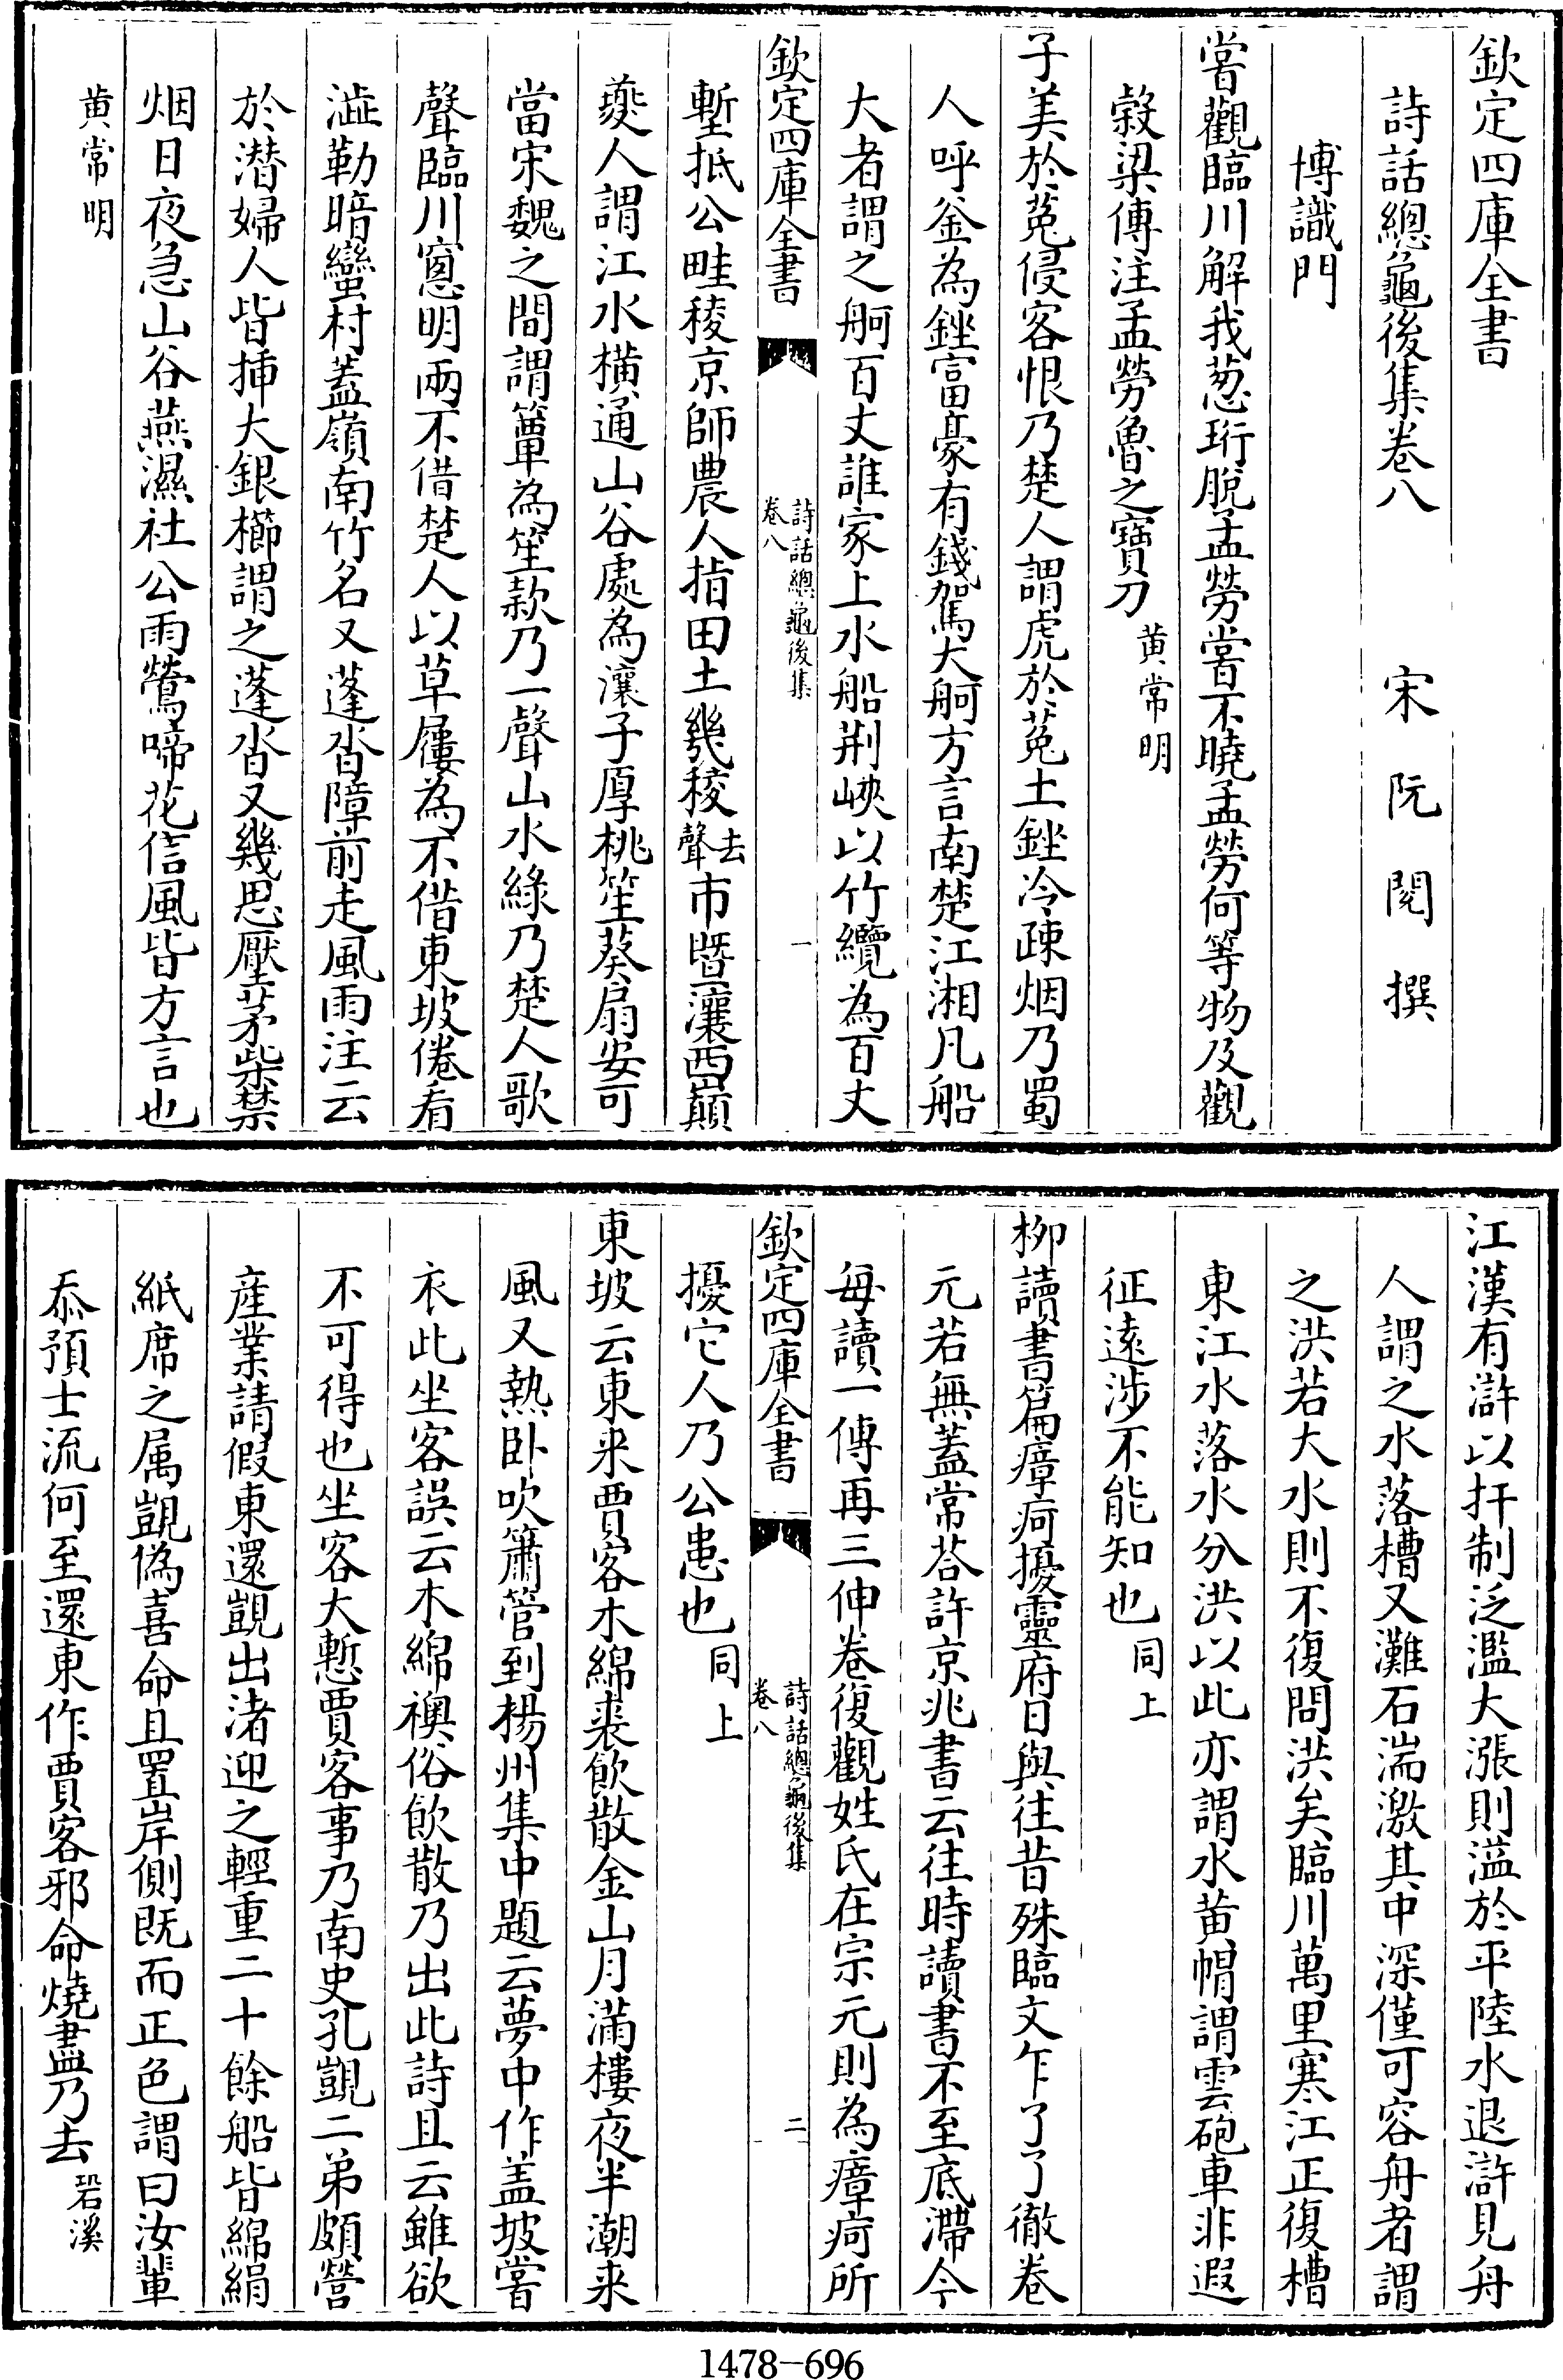 欽定四庫全書
詩話總龜後集卷八　宋　阮　閱　撰
博識門
嘗觀臨川解我葱珩脫孟勞嘗不曉孟勞何等物及觀
榖梁傳注孟勞魯之寶刀黄常明
子美於菟侵客恨乃楚人謂虎於菟土銼冷疎烟乃蜀
人呼釜為銼富豪有錢駕大舸方言南楚江湘凡船
大者謂之舸百丈誰家上水船荆峽以竹纜為百丈
欽定四庫全書
詩話總龜後集
卷八
一
塹抵公畦稜京師農人指田土幾稜去聲市暨瀼西巔
夔人謂江水横通山谷處為瀼子厚桃笙葵扇安可
當宋魏之間謂簟為笙款乃一聲山水綠乃楚人歌
聲臨川窻明兩不借楚人以草屨為不借東坡倦看
澁勒暗蠻村蓋嶺南竹名又蓬沓障前走風雨注云
於潛婦人皆挿大銀櫛謂之蓬沓又幾思壓茅柴禁
烟日夜急山谷燕濕社公雨鶯啼花信風皆方言也
黄常明
江漢有滸以扞制泛濫大漲則溢於平陸水退滸見舟
人謂之水落槽又灘石湍激其中深僅可容舟者謂
之洪若大水則不復問洪矣臨川萬里寒江正復槽
東江水落水分洪以此亦謂水黄帽謂雲砲車非遐
征遠涉不能知也同上
柳讀書篇瘴疴擾靈府日與往昔殊臨文乍了了徹卷
元若無蓋常荅許京兆書云往時讀書不至底滯今
每讀一傳再三伸卷復觀姓氏在宗元則為瘴疴所
欽定四庫全書
詩話總龜後集
卷八
二
擾它人乃公患也同上
東坡云東来賈客木綿裘飲散金山月滿樓夜半潮来
風又熟卧吹簫管到楊州集中題云夢中作盖坡嘗
衣此坐客誤云木綿襖俗飲散乃出此詩且云雖欲
不可得也坐客大慙賈客事乃南史孔覬二弟頗營
産業請假東還覬出渚迎之輕重二十餘船皆綿絹
紙席之属覬偽喜命且置岸側既而正色謂曰汝輩
忝預士流何至還東作賈客邪命燒盡乃去䂬溪
1478-696